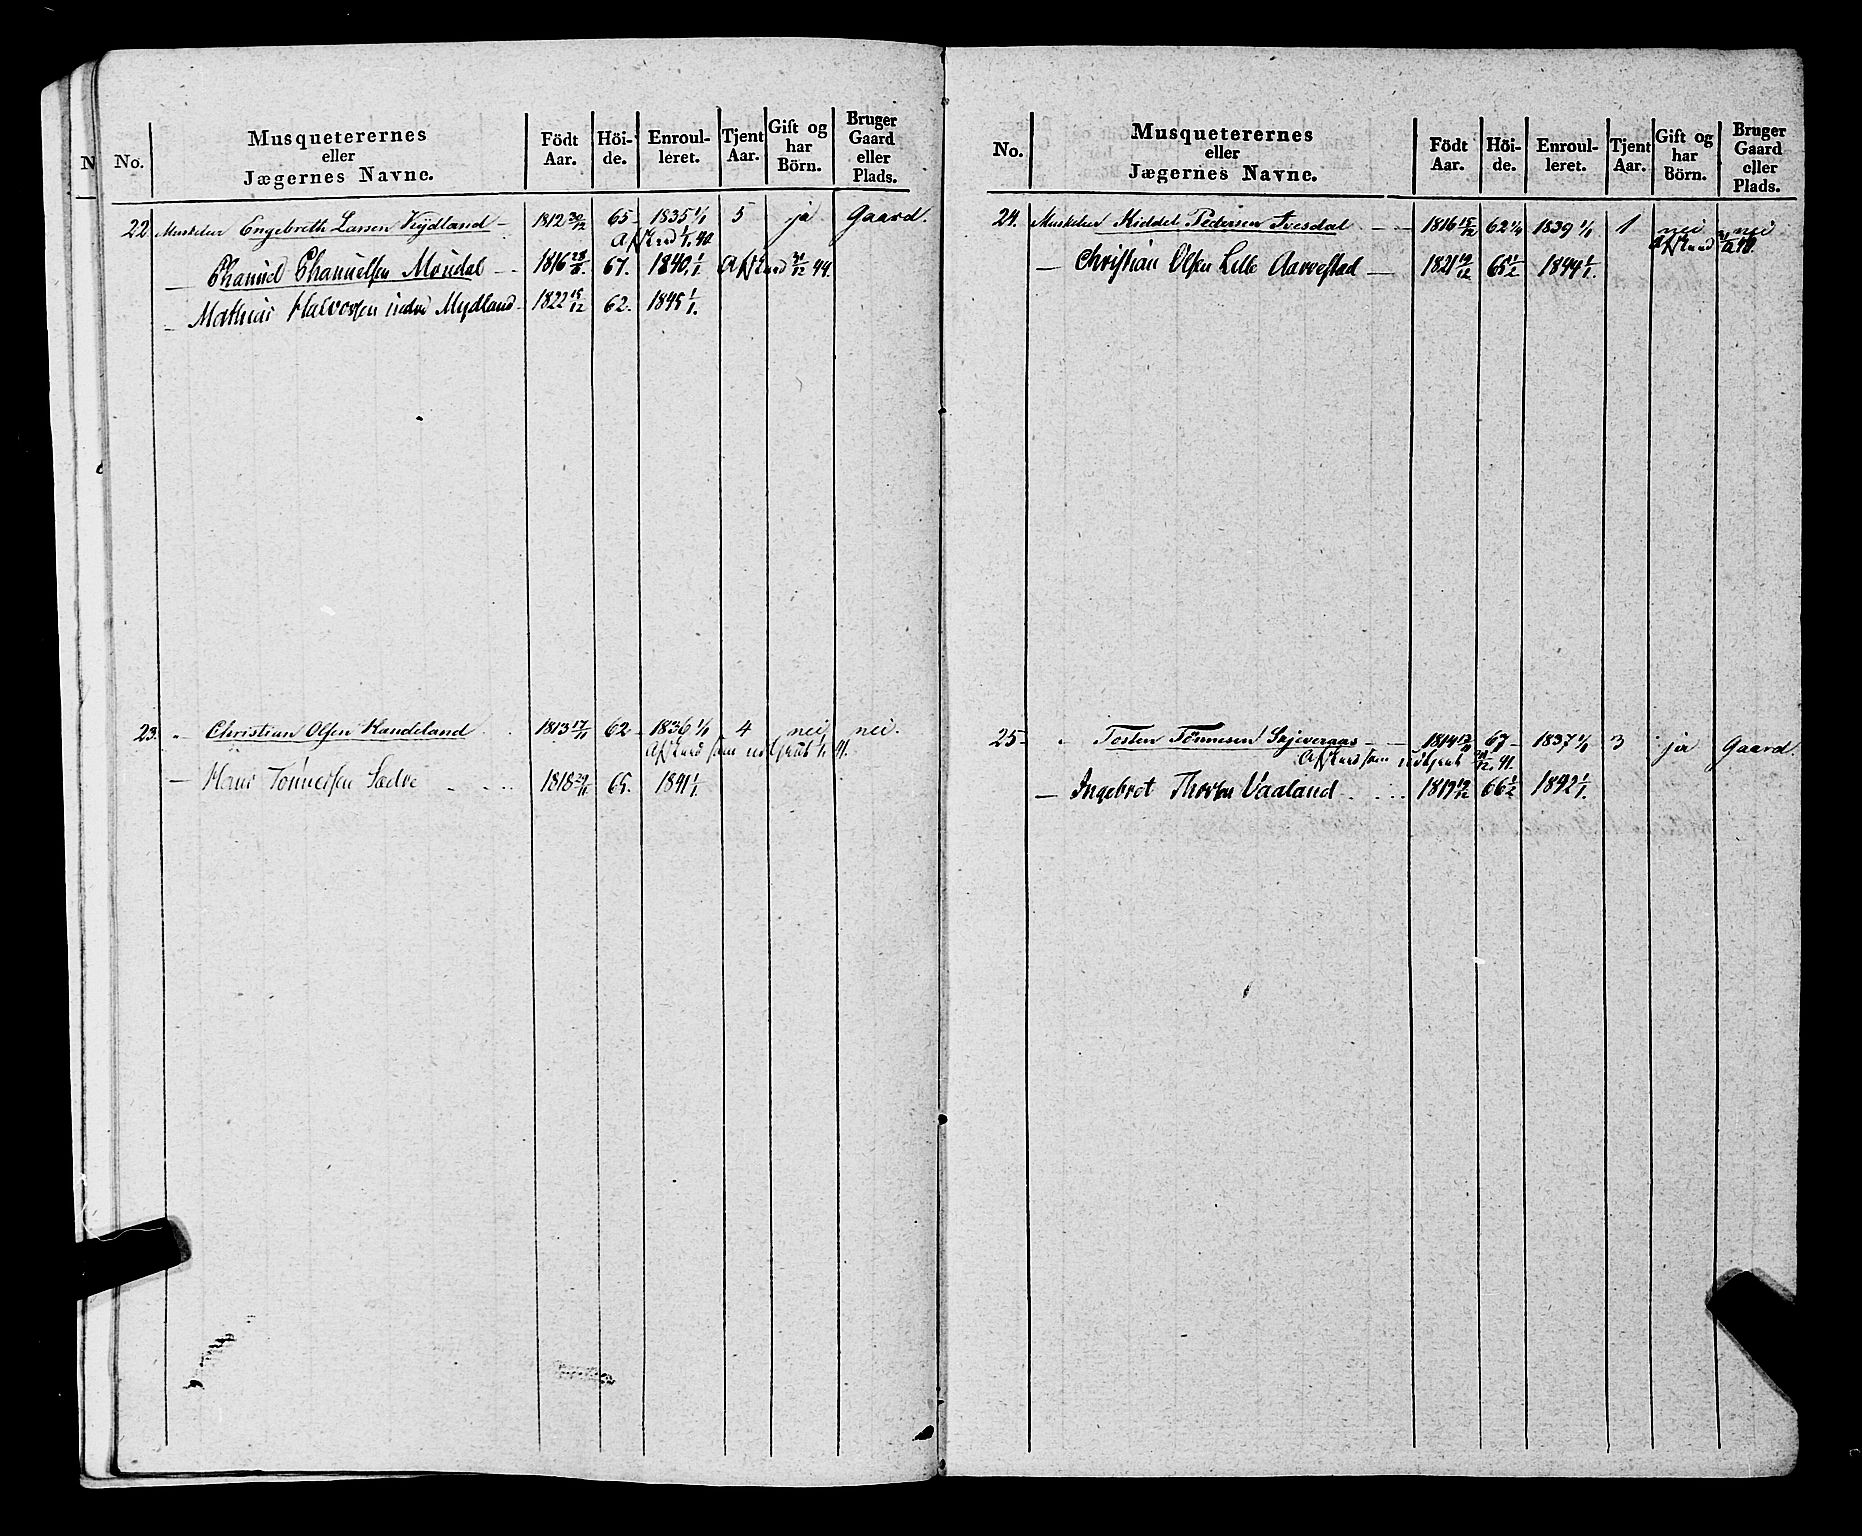 No. Musqueterernes eller Jægernes Navne. Födt Aar. Höi-de. Enroul-leret. Tjent Aar. Gift og har Börn. Bruger Gaard eller Plads.
22 Musketeer Engebreth Larsen Vijdland - 1812 30/12 65 - 1835 1/1 5 ja Gaard.
Afsked 1/1 40
— Thamiel Thamielsen Moudal - - 1816 28/8 67. 1840 1/1 Afsked 31/12 44.
— Mathias Halvorsen indre Mydland - 1822 15/12 62. 1845 1/1.
23. " Christian Olsen Handeland 1813 17/11 62 - 1836 1/1 4 nei nei.
Afsked som udtjent 1/1 41.
— Hans Tönnessen Sædre 1818 29/11 65. 1841 1/1.
No. Musqueterernes eller Jægernes Navne. Födt Aar. Höi-de. Enroul-leret. Tjent Aar. Gift og har Börn. Bruger Gaard eller Plads.
24. Musketeer Kiddel Pedersen Avesdal - - - 1816 15/12 62 1/4 1839 1/1 1 nei nei
Afsked
— Christian Olsen Lille Aarrestad — 1821 62/12 65 1/2 1844 1/1.
25 - " Tosten Tönnesen Skjeveraas - - 1814 67 - 1837 1/1 3 ja Gaard
Afsked som udtjent 31/12 41.
— Ingebret Thorsen Vaaland 1819 66 1/2 1842 1/1.